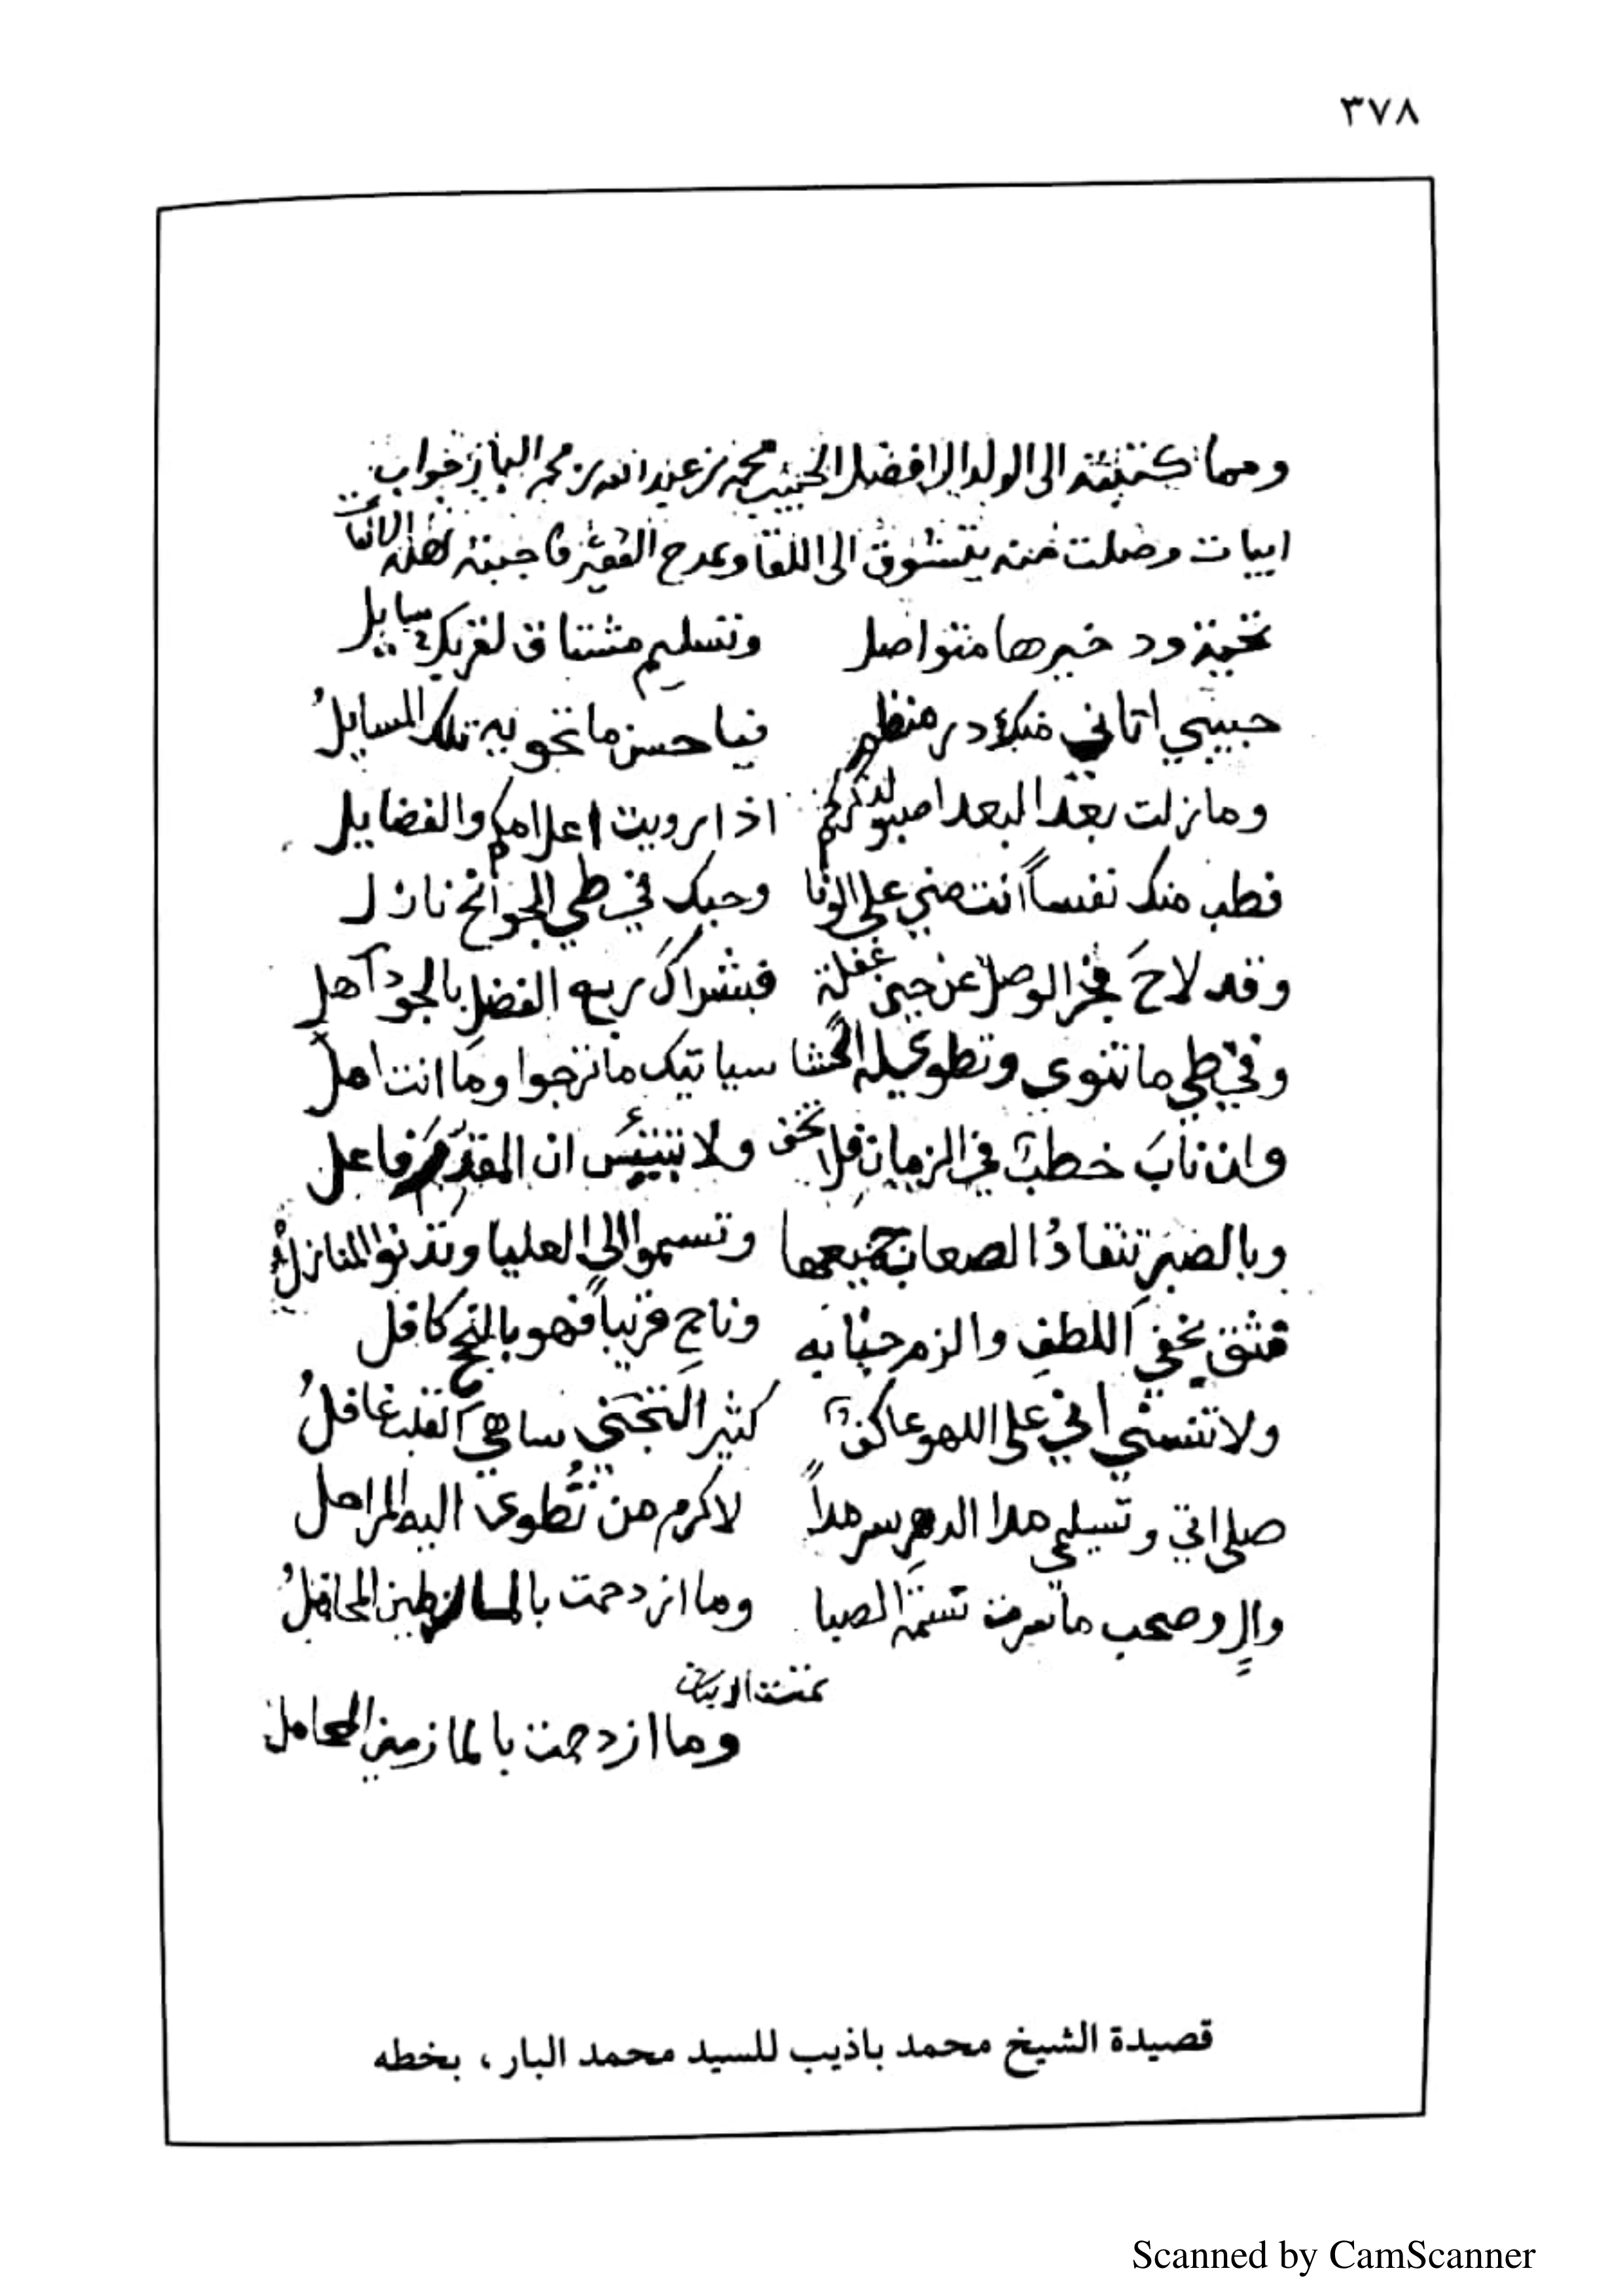 ٣٧٨
ومما كتبته الى الولد الافضل الحبيب محمد بن عبد الله بن محمد البار جواب
ابيات وصلت منه يتشوق الى اللقا ويمدح الفقير فاجبته بهذه الابيات
تحية ود خيرها متواصل وتسليم مشتاق لقربك سايل
حبيبي اتاني منك در منظم فيا حسن ما تحويه تلك المسايلُ
وما زلت بعد البعد اصبو لذكركم اذا رويت اعلامكم والفضايل
فطب منك نفساً انت مني على الوفا وحبك في طي الجوانح نازل
وقد لاحَ فجر الوصل عن حين غفلة فبشراكَ ربع الفضلِ بالجود آهل
وفي طي ما تنوي وتطوي له الحشا سياتيك ما ترجوا وما انت امل
وان نابَ خطب في الزمان فلا تخف ولا تبتئس ان المقدَّر فاعل
وبالصبرِ تنقادُ الصعاب جميعها وتسموا الى العليا وتدنوا المنازلُ
فثق بخفي اللطفِ والزم جنابه وناجِ قريباً فهو بالنجح كافل
ولا تنسني اني على اللهو عاكف كثير التجني ساهي القلب غافلُ
صلاتي وتسليمي مدا الدهرِ سرمداً لاكرم من تُطوى اليه المراحل
والٍ وصحب ما سرت نسمة الصبا وما ازدحمت المحافلُ
تمت الابيات
وما ازدحمت بالمازمين المحامل
قصيدة الشيخ محمد باذيب للسيد محمد البار ، بخطه
Scanned by CamScanner